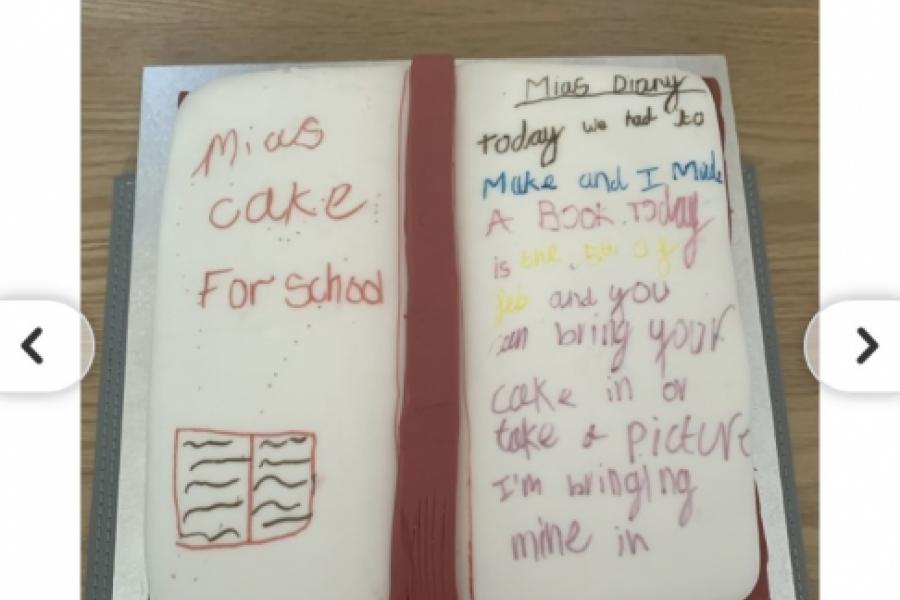 Mias
cake
For school
Mias Diary
today we had to
Make and I Made
A Book Today
is the 5th of
feb and you
can bring your
cake in or
take a picture
I'm bringing
mine in